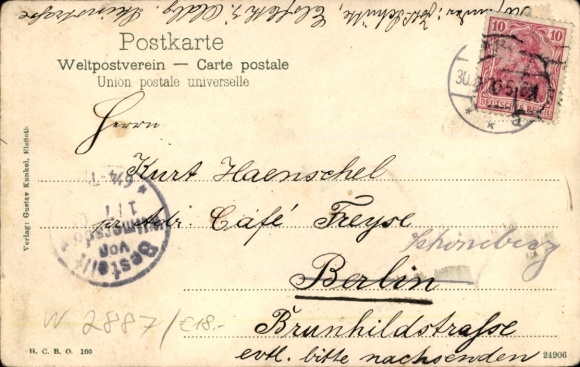 Elsfleth i. Oldbg. Steinstraße
Postkarte
Weltpostverein — Carte postale
Union postale universelle
10 10
DEUTSCHES REICH
30.
Herrn
Kurt Haenschel
Adr. Café Freyse
Schöneberg
Berlin
Brunhildstraße
evtl. bitte nachsenden
Bestellt
vom
1/1
W 2887/€18.-
Verlag: Gustav Kunkel, Elsfleth
H. C. B. O. 160
24906